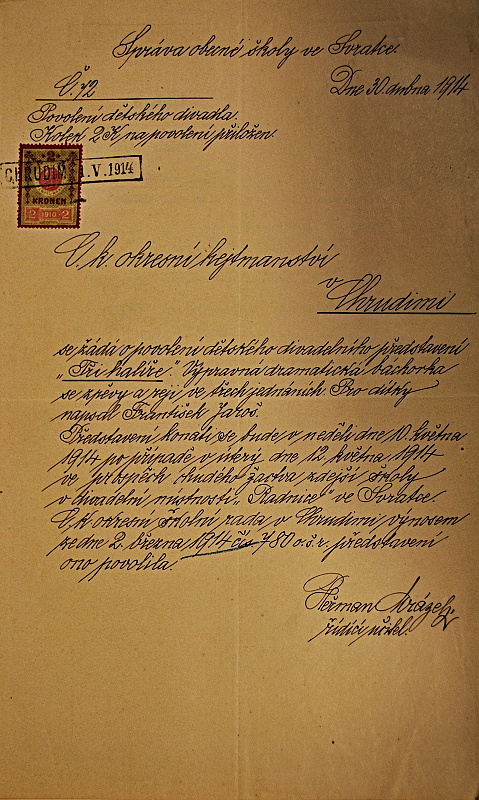 Správa obecné školy ve Svratce.
Č. 72
Dne 30 dubna 1914
Povolení dětského divadla.
Kolek 2 K na povolení přiložen.
CHRUDIM 1.V.1914
2
KRONEN
2 1910 2
C. k. okresní hejtmanství
v
Chrudimi
se žádá o povolení dětského divadelního představení
„Tři halíře". Výpravná dramatická báchorka
se zpěvy a reji ve třech jednáních. Pro dítky
napsal František Jaroš.
Představení konati se bude v neděli dne 10. května
1914 po případě v úterý dne 12. května 1914
ve prospěch chudého žactva zdejší školy
v divadelní místnosti „Radnice" ve Svratce.
C. k. okresní školní rada v Chrudimi výnosem
ze dne 2. března 1914 čís 780 o.š.r. představení
ono povolila.
Heřman
řídící učitel.